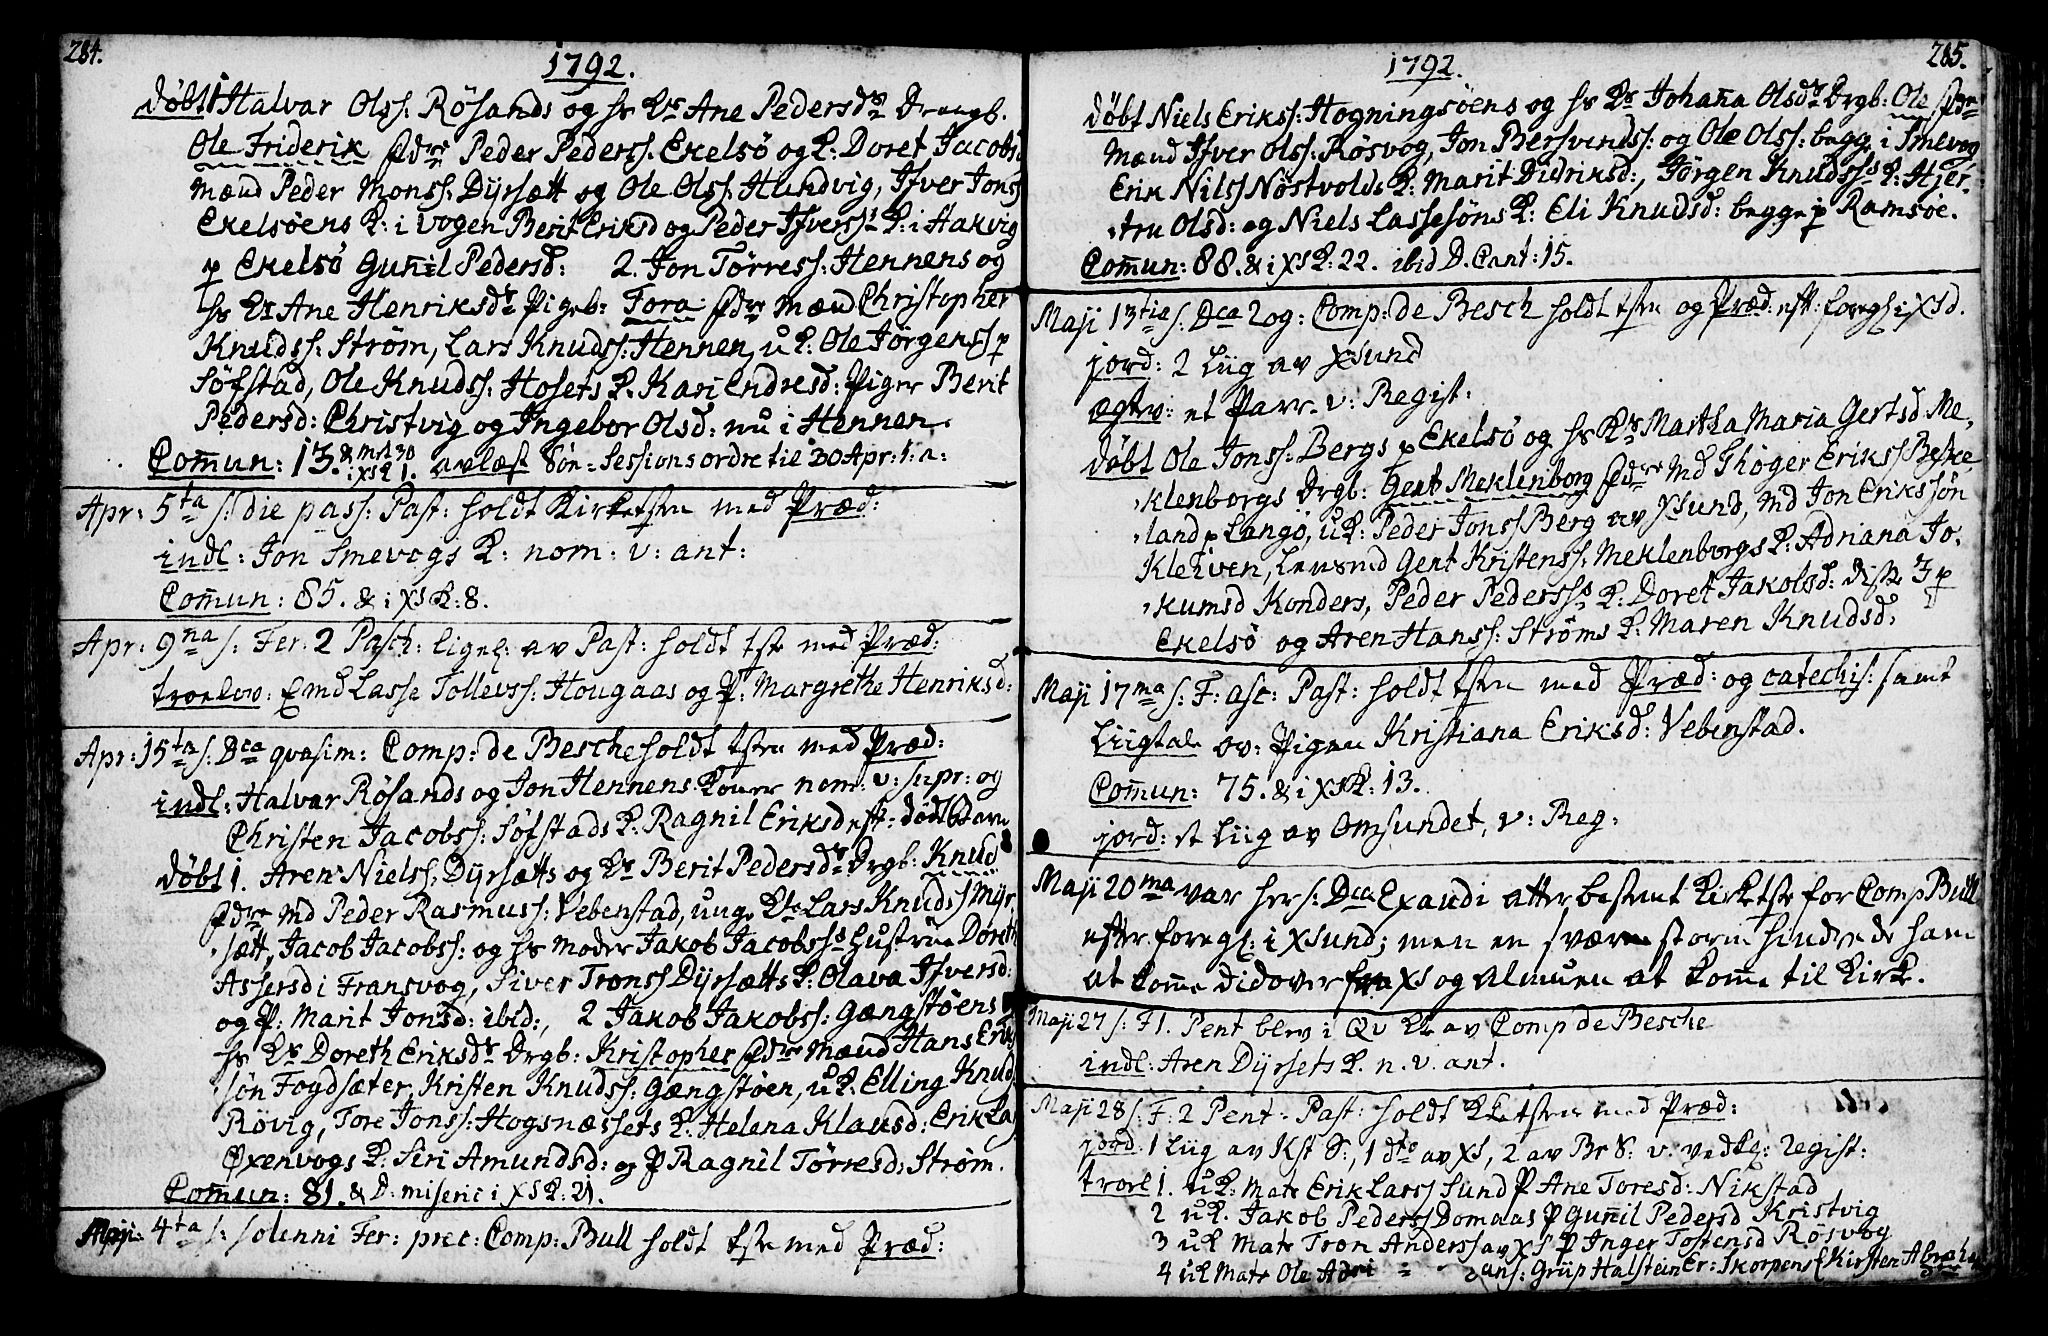 284.
1792.
døbt 1 Halvar Olss: Rösands og hs Kr Ane Pedersdr Drengb.
Ole Friderik fdre Peder Pederss. Ekelsö og K: Doret Jacobsd
Mænd Peder Monss: Dÿrsætt og Ole Olss: Hundvig, Ifver Jonss
Ekelsöens K: i Vogen Berit Eriksd og Peder Ifverss K: i Hakvig
p Ekelsö Guñil Pedersd: 2. Jon Törress: Hennens og
hs Kr Ane Henriksdr Pigeb: Fora fdre Mænd Christopher
Knudss: Ström, Lars Knudss: Hennen, u K: Ole Jörgenss p
Söfstad, Ole Knudss: Hosets K. Kari Endresd: Piger Berit
Pedersd: Christvig og Ingebor Olsd: nu i Hennen.
Com̃un: 13. & i XS K 1. avlæst Søn-Sessionsordre til 30 Apr: 1: a:
Apr: 5ta s: die pass: Past: holdt Kirketstn med Præd:
indl: Jon Smevogs K: nom: v: ant:
Com̃un: 85. & i XS K: 8.
Apr: 9na s: Fer: 2 Pasch: ligel: av Past: holdt tste med Præd:
troelov: Emd Lasse Tollevss: Hougaas og P: Margrethe Henriksd:
Apr: 15ta s: Dca qvasim: Comp: de Besche holdt tstn med Præd:
indl: Halvar Rösands og Jon Hennens Koner nom: v: supr: og
Christen Jacobss: Söfstads K: Ragnil Eriksd eft: dödl barn
døbt 1. Aren Nielss: Dÿrsætts og Kr Berit Pedersdr Drgb: Knud
fdre Md Peder Rasmuss: Vebenstad, unge Lars Knudss Mÿr-
sætt, Jacob Jacobss: og hs Moder Jakob Jacobss Hustrue Doreth
Assersd i Fransvog, Siver Tronss Dÿrsætts K: Olava Ifversd:
og P: Marit Jonsd: ibid:, 2 Jakob Jakobss: Gængstöens
hs Kr Doreth Eriksdr Drgb: Kristopher fdre Mænd Hans Erik
sön Fogdsæter, Kristen Knudss: Gængstöen, u K. Elling Knud
Rövig, Tore Jonss: Hogsnæssets K: Helena Klausd: Erik Las
Öxenvogs K: Siri Amundsd: og P Ragnil Törresd: Ström.
Com̃un: 81. & D: miseric i XS K: 21.
Maji: 4ta s: solenni Fer: prec: Comp: Bull holdt tste med Præd:
285.
1792.
døbt Niels Erikss: Hogningsöens og hs Kr Johaña Olsdr Drgb: Ole fdre
Mænd Ifver Olss: Rösvog, Jon Bersvendss: og Ole Olss: begge i Smevog
Erik Nilss Nöstvolds K: Marit Didriksd:, Jörgen Knudss K: Hjer-
tru Olsd: og Niels Lassesöns K: Eli Knudsd: begge p Ramsöe.
Com̃un: 88. & i XS K: 22. ibid D. Cant: 15.
Maji 13tia s: Dca Rog: Comp: de Besch holdt tstn og Præd: eft: foregl: i XSd.
jord: 2 Liig av XSund
ægtev: et Parr. v: Regist:
døbt Ole Jonss: Bergs p Ekelsö og hs Kr Martha Maria Gertsd Me-
klenborgs Drgb: Gert Meklenborg fdre Md Thöger Erikss Beske
land p Langö, u K: Peder Jonss Berg av XSund, Md Jon Erikssön
Klekven, Gert Kristenss: Meklenborgs K: Adriana Jo-
kumsd Konders, Peder Pederss K: Doret Jakobsd: disse 3 p
Ekelsö og Aren Hanss: Ströms K: Maren Knudsd:
Maji 17ma s: F: asc: Past: holdt tstn med Præd: og catechis: samt
Liigtale ov: Pigen Kristiana Eriksd: Vebenstad.
Com̃un: 75. & i XS K: 13.
jord: et Liig av Omsundet, v: Reg:
Maji 20ma var her s: Dca Exaudi atter bestemt Kirketste for Comp Bull
efter foregl: i XSund; men en svær storm hindrede ham
at kom̃e did over fra XS og Almuen at kom̃e til Kirk.
Maji 27 s: F 1. Pent blev i Qv av Comp de Besche
indl: Aren Dÿrsets K. n. v. ant.
Maji 28 s: F: 2 Pent: Past: holdt Kketstn med Præd:
jord: 1 Liig av Kst S:, 1 dto av XS, 2 av Br S: v: vedkg: Regist:
trovl 1. u K: Mats Erik Larss Sund P Ane Toresd: Nikstad
2 u K. Jakob Pederss Domaas P Guñil Pedersd Kristvig
3 u K Mats Tron Anderss av XS P Inger Tostensd Rösvog
4 u K Mats Ole Adri ans: Grüp Halstein Er: Skorpens E Kirsten Abraha